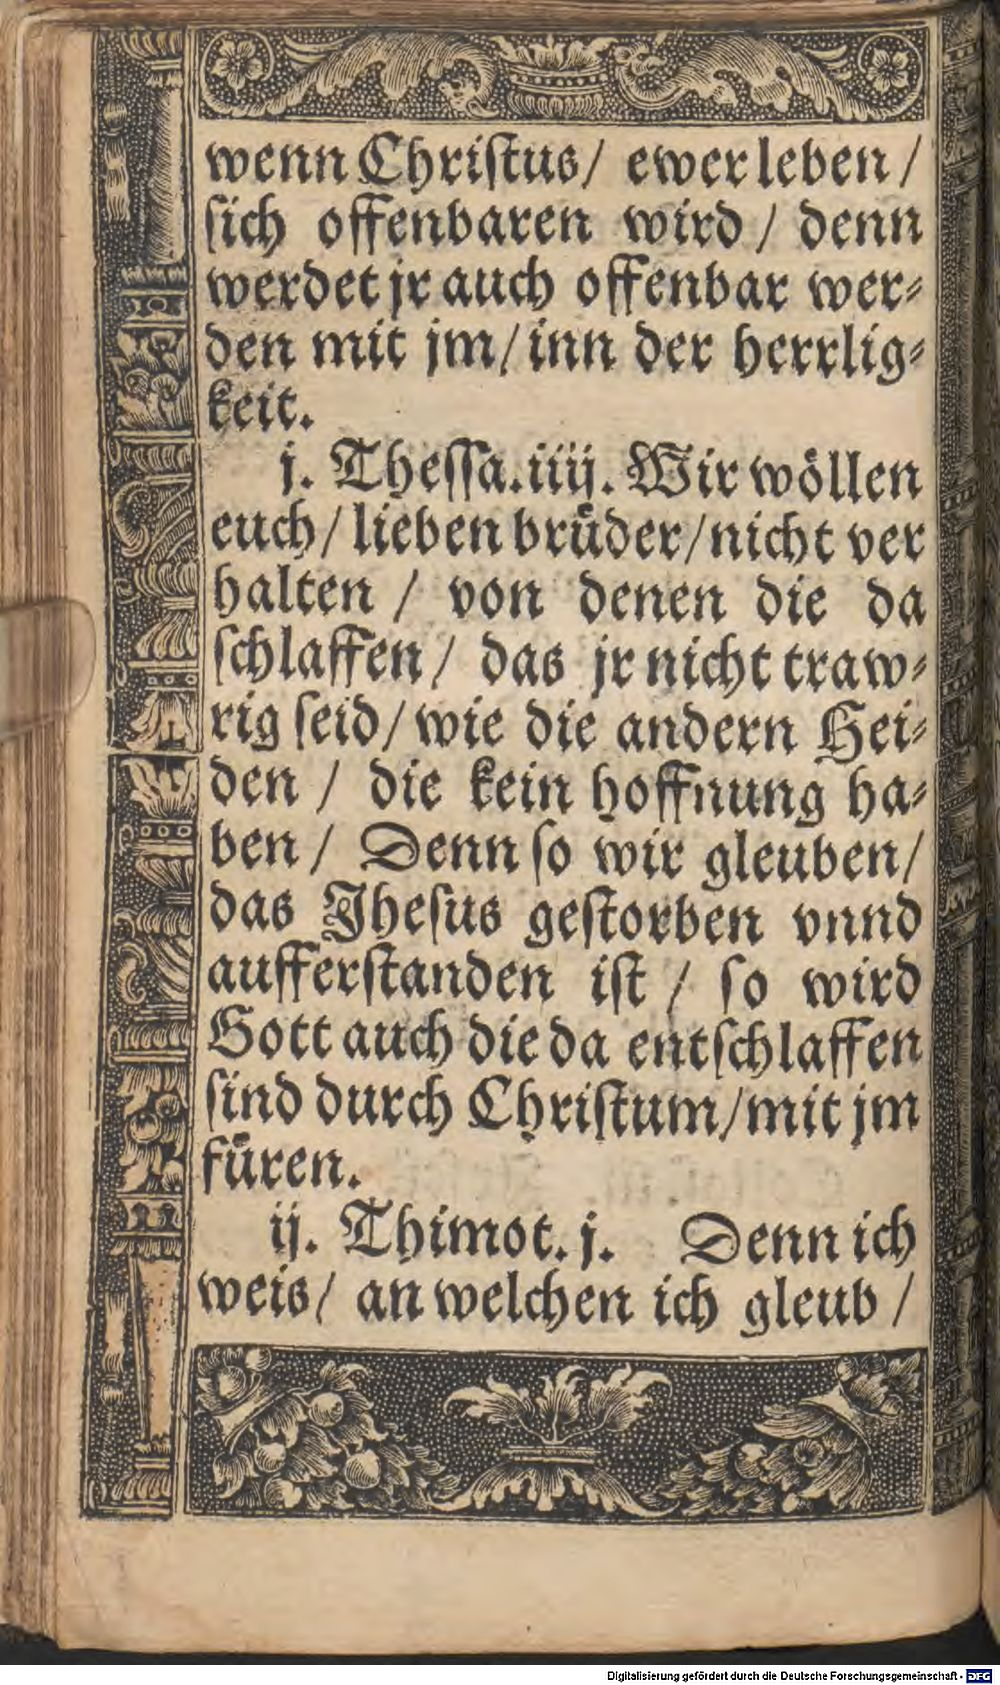 wenn Chriſtus/ ewer leben /
ſich offenbaren wird / denn
werdet jr auch offenbar wer⸗
den mit jm/ inn der herrlig⸗
keit.
j. Theſſa. iiij. Wir wöllen
euch / lieben brüder / nicht ver
halten / von denen die da
ſchlaffen / das jr nicht traw⸗
rig ſeid / wie die andern Hei⸗
den / die kein hoffnung ha⸗
ben / Denn ſo wir gleuben /
das Jheſus geſtorben vnnd
aufferſtanden iſt / ſo wird
Gott auch die da entſchlaffen
ſind durch Chriſtum / mit jm
füren.
ij. Thimot. j. Denn ich
weis / an welchen ich gleub /
Digitalisierung gefördert durch die Deutsche Forschungsgemeinschaft - DFG